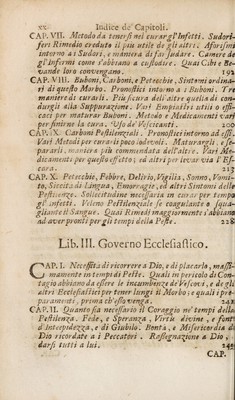 xx Indice de Capitoli.
CAP. VII. Metodo da tenersi nel curar gl'Infetti. Sudori-
feri Rimedio creduto il più utile de gli altri. Aforismi
intorno ai Sudori, e maniera di far sudare. Camere de
gl'Infermi come s'abbiano a custodire. Quai Cibi e Be-
vande loro convengano. 192
CAP. VIII. Buboni, Carboni, e Petecchie, Sintomi ordina-
rj di questo Morbo. Pronostici intorno a i Buboni. Tre
maniere di curarli. Più sicura dell'altre quella di con-
durgli alla Suppurazione. Varj Empiastri utili o effi-
caci per maturar Buboni. Metodo e Medicamenti varj
per finirne la cura. Uso de' Vescicanti. 200
CAP. IX. Carboni Pestilenziali. Pronostici intorno ad essi.
Varj Metodi per curarli poco lodevoli. Maturargli, e se-
pararli, maniera più commendata dell'altre. Varj Me-
dicamenti per questo effetto; ed altri per levar via l'Es-
cara. 213
CAP. X. Petecchie, Febbre, Delirio, Vigilia, Sonno, Vomi-
to, Siccità di Lingua, Emorragie, ed altri Sintomi delle
Pestilenze. Sollecitudine necessaria in curar per tempo
gl'infetti. Veleno Pestilenziale se coagulante o squa-
gliante il Sangue. Quai Rimedj maggiormente s'abbiano
ad aver pronti per gli tempi della Peste. 228
Lib. III. Governo Ecclesiastico.
CAP. I. Necessità di ricorrere a Dio, e di placarlo, massi-
mamente in tempi di Peste. Quali in pericolo di Con-
tagio abbiano da essere le incumbenze de' Vescovi, e de gli
altri Ecclesiastici per tener lungi il Morbo; e quali i pre-
paramenti, prima ch'esso venga. 242
CAP. II. Quanto sia necessario il Coraggio ne' tempi della
Pestilenza. Fede, e Speranza, Virtù divine, e fonti
d'Intrepidezza, e di Giubilo. Bontà, e Misericordia di
Dio ricordate a i Peccatori. Rassegnazione a Dio, e
darsi tutti a lui. 249
CAP.